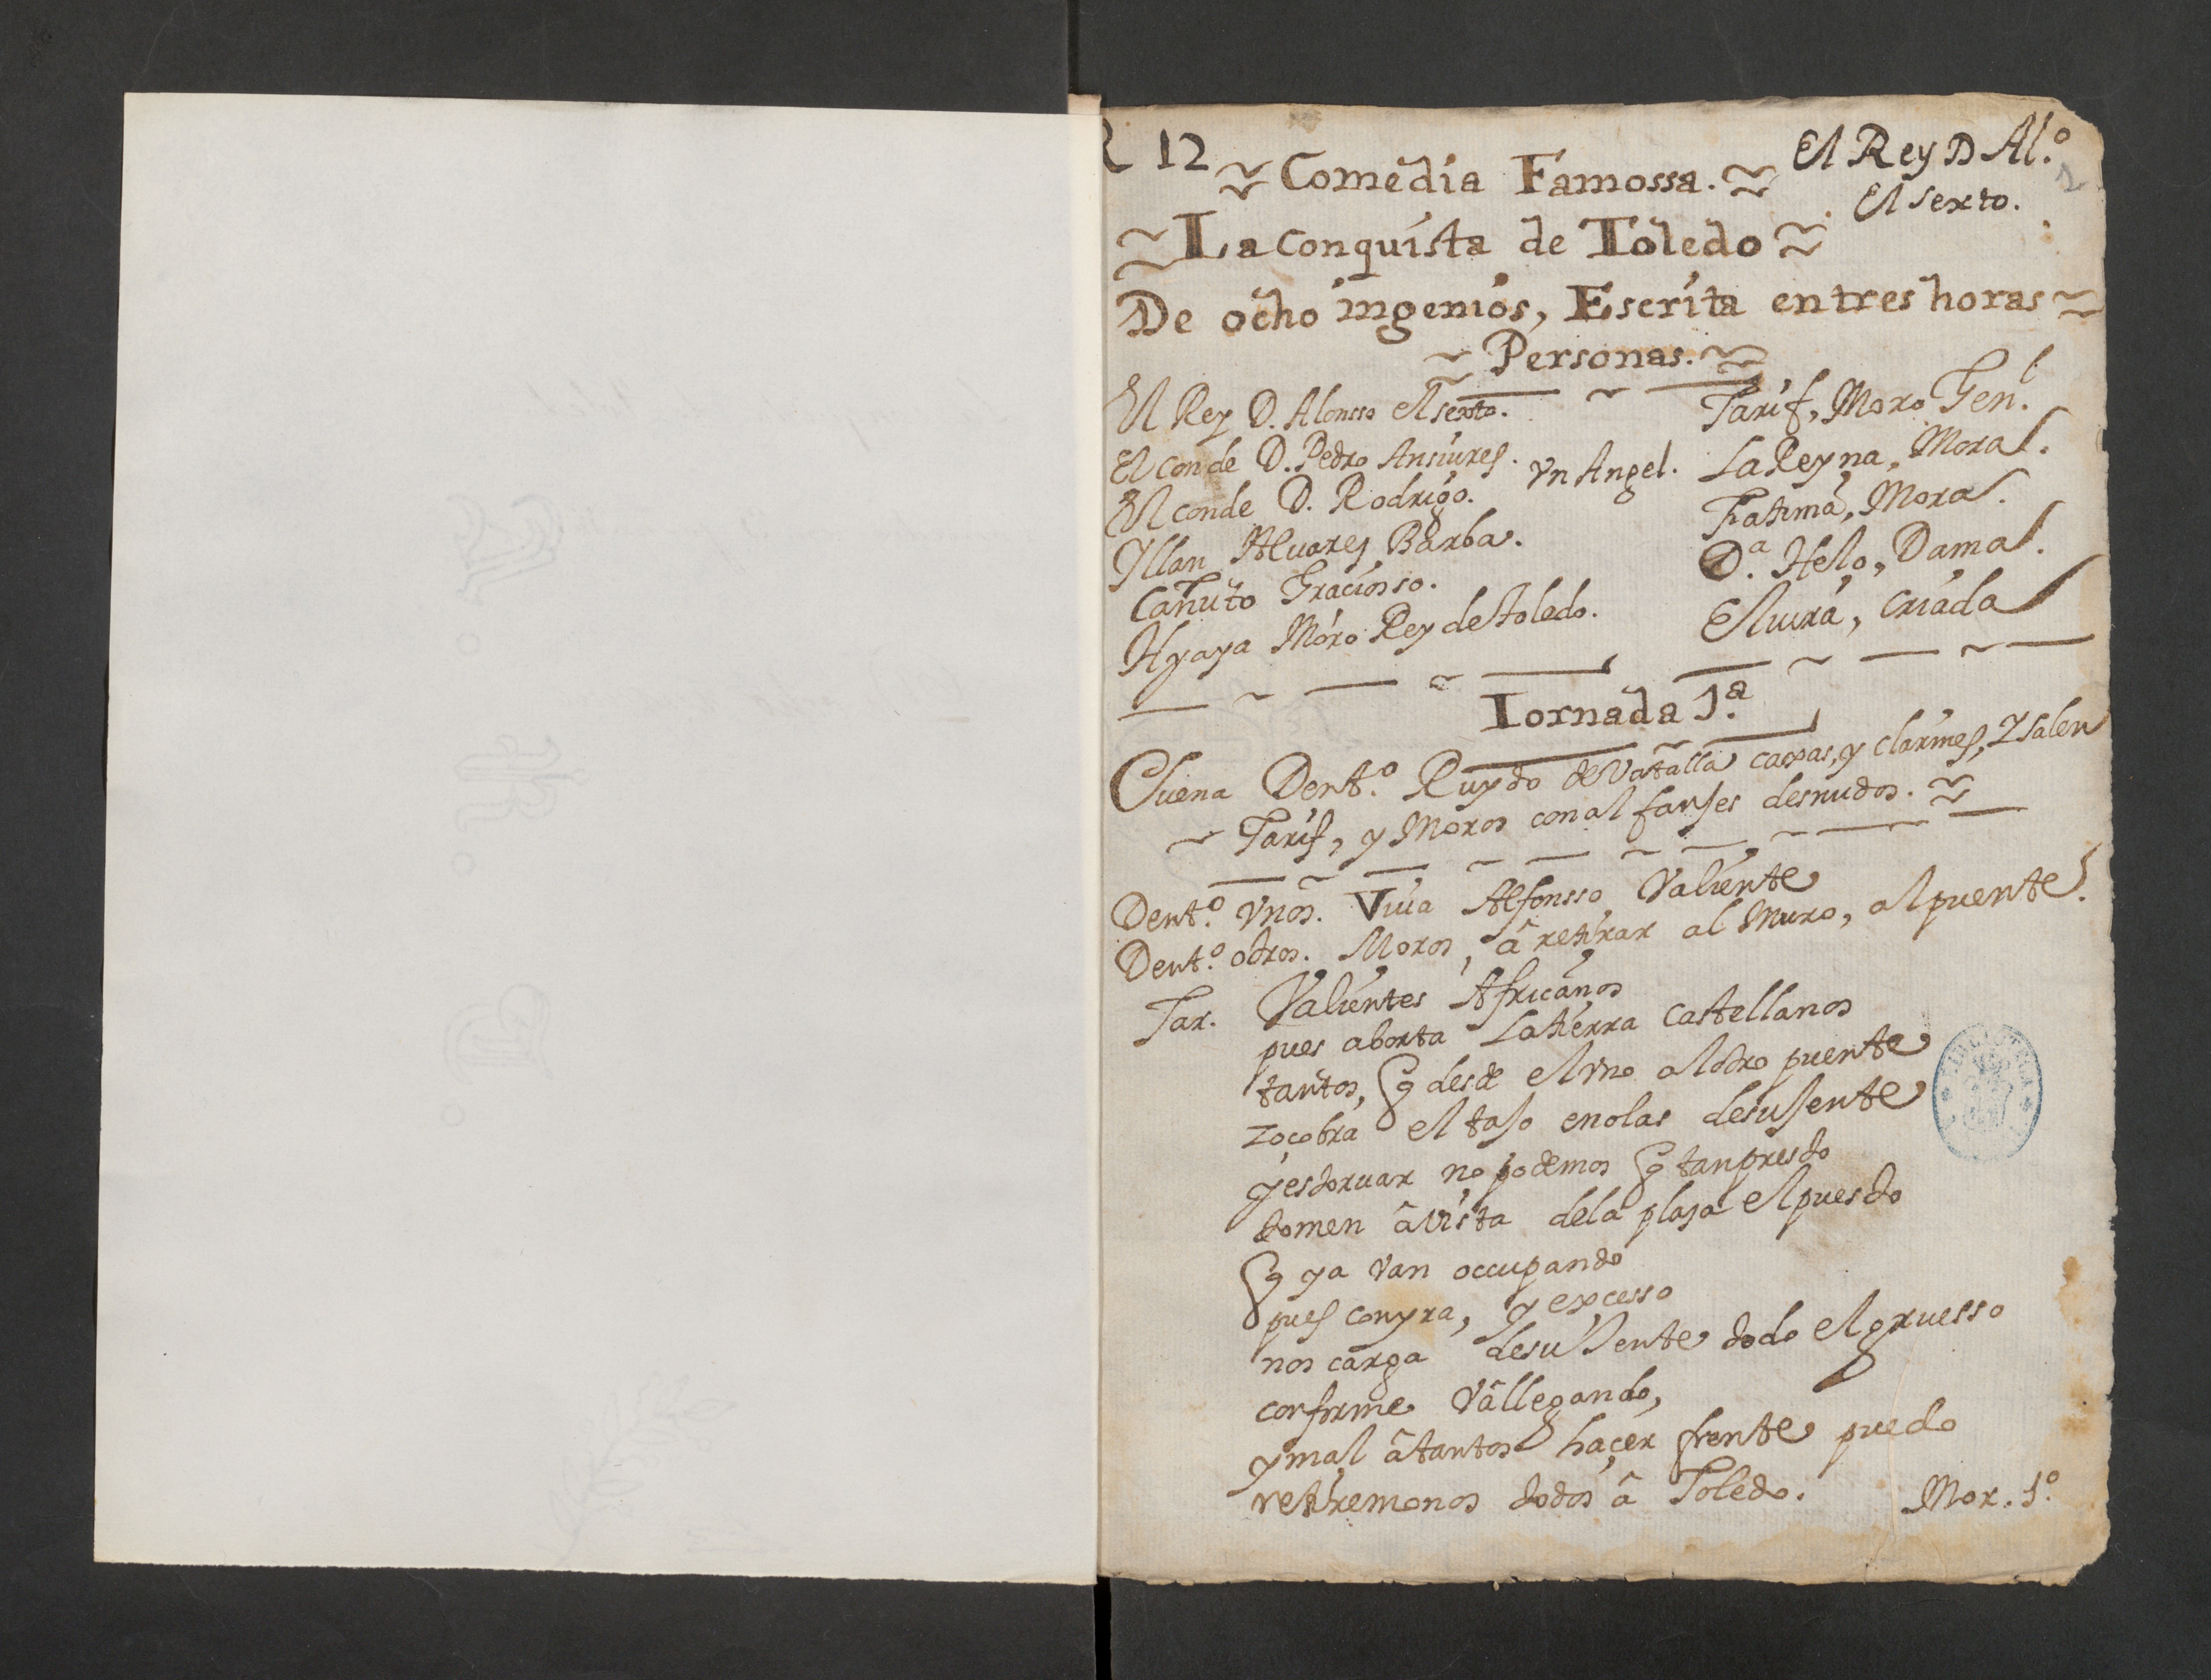 R 12
Comedia Famossa.
El Rey D Al.º
El sexto.
La conquista de Toledo
De ocho ingenios, Escrita en tres horas
Personas.
El Rey D. Alonsso el sexto.
El conde D. Pedro Ansures.
El conde D. Rodrigo.
Yllan Aluares Barba.
Cañuto Graciosso.
Hyaya Moro Rey de toledo.
Vn Angel.
Tarif, Moro Gen.l
La Reyna, Mora.
Fatima, Mora.
D.ª Helo, Dama.
Eluira, criada
Iornada 1.ª
Suena Dent.º Ruydo de Vatalla caxas, y clarines, Y salen
Tarif, y Moros con alfanjes desnudos.
Dent.º Vnos. Viua Alfonsso Valiente
Dent.º otros. Moros, â retirar al Muro, al puente.
Tar. Valientes Africanos
pues aborta La tierra castellanos
tantos, q desde el vno al otro puente
zoçobra el tajo en olas de su jente
y estoruar no podemos q tan presto
tomen â vista de la plaza el puesto
q ya van occupando
pues con yra, y excesso
nos carga de su Jente todo el gruesso
conforme Vâ llegando,
y mal â tantos haçer frente puedo
retiremonos todos â Toledo.
Mor. 1.º